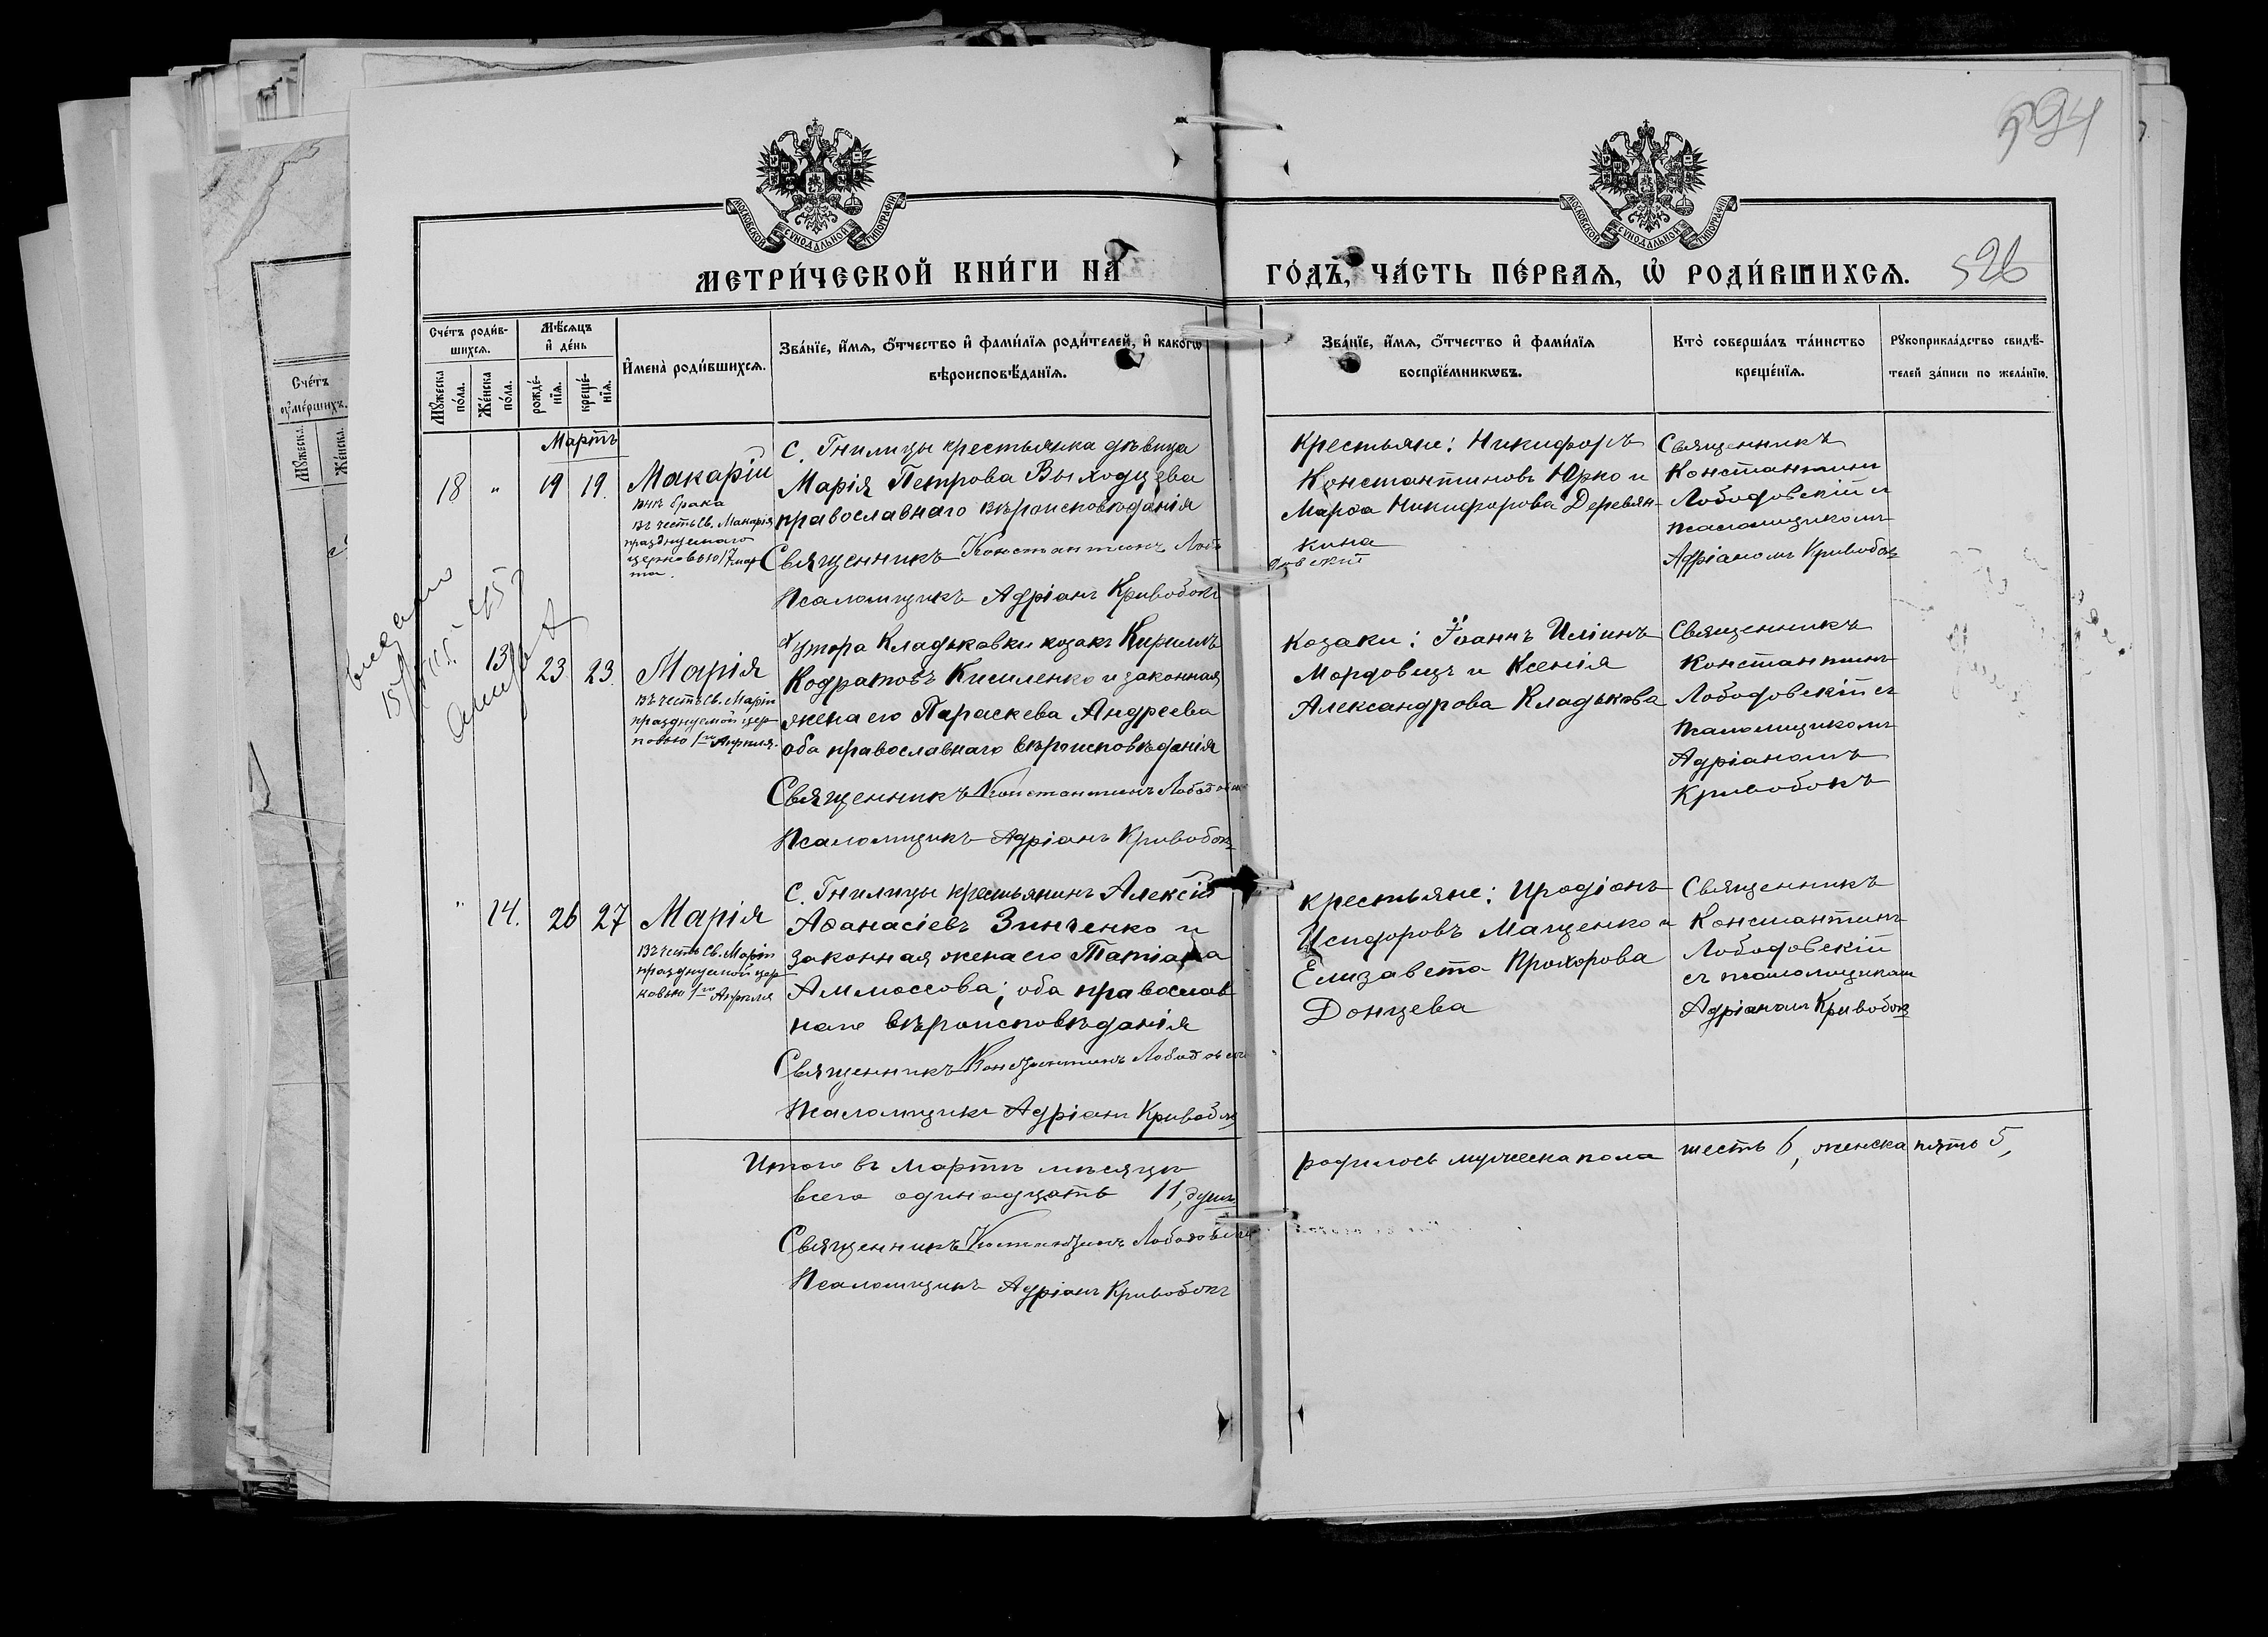 594
МОСКОВСКОЙ СУНОДАЛЬНОЙ ТИПОГРАФІИ
МОСКОВСКОЙ СУНОДАЛЬНОЙ ТИПОГРАФІИ
МЕТРИ́ЧЕСКОЙ КНИ́ГИ НА
ГО́ДЪ, ЧА́СТЬ ПЕ́РВАЯ, Ѡ҆ РОДИ́ВШИХСЯ.
526
Сче́тъ роди́в-
шихсѧ.
Мꙋ́жеска по́ла.
Же́нска по́ла.
Мѣ́сѧцъ
и҆ де́нь
рожде́-нїѧ.
креще́-нїѧ.
И҆мена̀ роди́вшихсѧ.
Зва́нїе, и҆́мѧ, ѻ҆́тчество и҆ фами́лїѧ роди́телей, и҆ како́гѡ
вѣроисповѣ́данїѧ.
Зва́нїе, и҆́мѧ, ѻ҆́тчество и҆ фами́лїѧ
воспрїе́мникѡвъ.
Кто̀ соверша́лъ та́инство
креще́нїѧ.
Рꙋкоприкла́дство свидѣ́-
телей за́писи по жела́нїю.
Сче́тъ
ᲂу҆ме́ршихъ.
Мꙋ́жеска.
Же́нска.
Мартъ
18 " 19 19.
Макарій
внѣ брака
въ честь Св. Макарія
празднуемаго
церковью 17 мар-
та.
с. Гнилицы крестьянка дѣвица
Марія Петрова Выходцева
православнаго вѣроисповѣданія
Священникъ Константинъ Лобо
довскій
Псаломщикъ Адріанъ Кривобокъ
Крестьяне: Никифоръ
Константиновъ Юрко и
Марѳа Никифорова Деревян-
кина
Священникъ
Константинъ
Лободовскій съ
псаломщикомъ
Адріаномъ Кривобок
13 23 23.
Марія
въ честь Св. Маріи
празднуемой цер-
ковью 1го Апрѣля.
хутора Кладьковки козакъ Кириллъ
Кодратовъ Кисиленко и законная
жена его Параскева Андреева
оба православнаго вѣроисповѣданія
Священникъ Константинъ Лободовск
Псаломщикъ Адріанъ Кривобокъ
козаки: Іоаннъ Иліинъ
Мордовецъ и Ксенія
Александрова Кладькова
Священникъ
Константинъ
Лободовскій съ
псаломщикомъ
Адріаномъ
Кривобокъ
" 14. 26 27
Марія
въ честь Св. Маріи
празднуемой цер-
ковью 1го Апрѣля
с. Гнилицы крестьянинъ Алексій
Аѳанасіевъ Зинченко и
законная жена его Татіана
Аммосова; оба православ
наго вѣроисповѣданія
Священникъ Константинъ Лободовскій
Псаломщикъ Адріанъ Кривобокъ
крестьяне: Иродіонъ
Исидоровъ Мащенко и
Елизавета Прохорова
Донцева
Священникъ
Константинъ
Лободовскій
съ псаломщикомъ
Адріаномъ Кривобок
Итого въ Мартѣ мѣсяцѣ
родилось мужеска пола шесть 6, женска пять 5,
всего одинадцать 11, душъ
Священникъ Константинъ Лободовскій
Псаломщикъ Адріанъ Кривобокъ